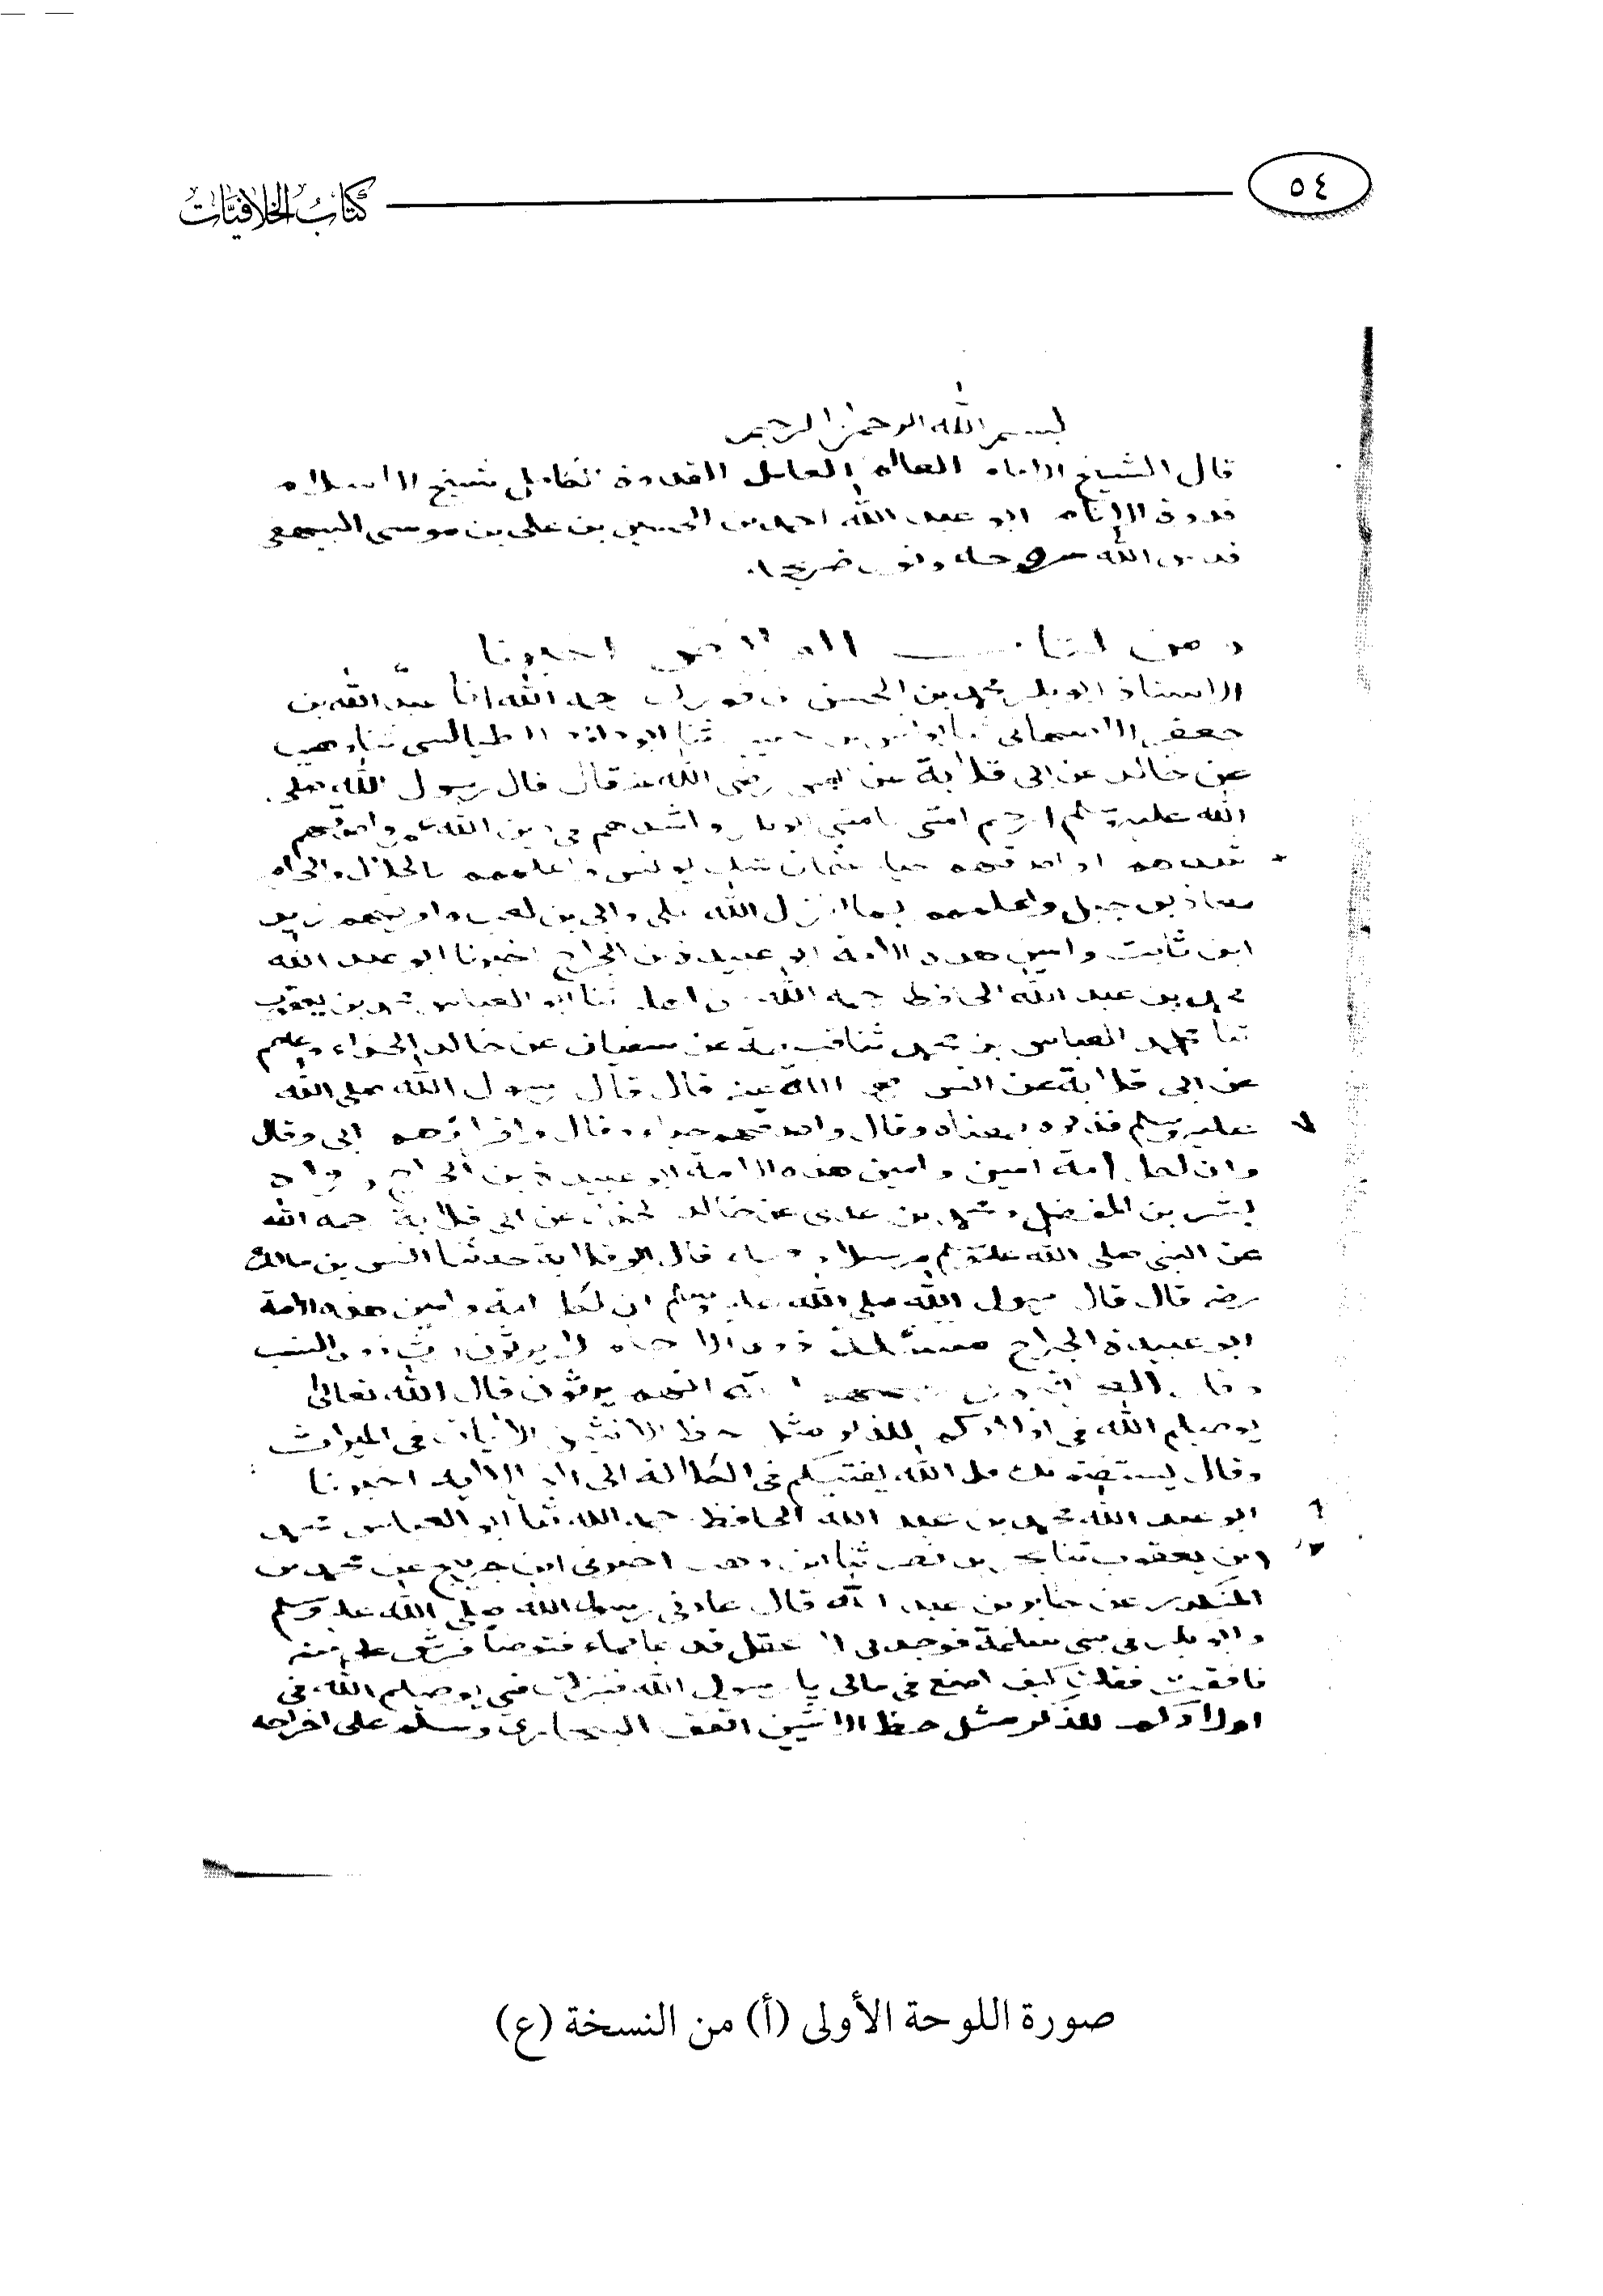 ٥٤
كتاب الخلافيات
بسم الله الرحمن الرحيم
قال الشيخ الامام العالم العامل القدوة الكامل شيخ الاسلام
قدوة الانام ابو عبد الله احمد بن الحسين بن علي بن موسى البيهقي
قدس الله روحه ونور ضريحه
ومن كتاب الفرائض اخبرنا
الاستاذ ابو بكر محمد بن الحسن بن فورك رحمه الله انا عبد الله بن
جعفر الاصبهاني ثنا يونس بن حبيب ثنا ابو داود الطيالسي ثنا وهيب
عن خالد عن ابي قلابة عن انس رضي الله عنه قال قال رسول الله صلى
الله عليه وسلم ارحم امتي بامتي ابو بكر واشدهم في دين الله عمر
حياء عثمان واعلمهم بالحلال والحرام
معاذ بن جبل واعلمهم بما انزل الله علي وابي بن كعب وافرضهم زيد
ابن ثابت وامين هذه الامة ابو عبيدة بن الجراح اخبرنا ابو عبد الله
محمد بن عبد الله الحافظ رحمه الله ثنا ابو العباس محمد بن يعقوب
ثنا العباس بن محمد ثنا قبيصة عن سفيان عن خالد الحذاء وعاصم
عن ابي قلابة عن انس رضي الله عنه قال قال رسول الله صلى الله
عليه وسلم فذكره بمعناه وقال واصدقهم حياء وقال واقراهم ابي وقال
وان لكل امة امين وامين هذه الامة ابو عبيدة بن الجراح ورواه
بشر بن المفضل ومحمد بن عدي عن خالد عن ابي قلابة رحمه الله
عن النبي صلى الله عليه وسلم مرسلا قال ابو قلابة حدثنا انس بن مالك
رضه قال قال رسول الله صلى الله عليه وسلم ان لكل امة وامين هذه الامة
ابو عبيدة الجراح مسئلة ذوو الارحام لا يورثون
انهم يرثون قال الله تعالى
يوصيكم الله في اولادكم للذكر مثل حظ الانثيين الايات في الميراث
وقال يستفتونك قل الله يفتيكم في الكلالة الى اخر الاية اخبرنا
ابو عبد الله محمد بن عبد الله الحافظ رحمه الله ثنا ابو العباس محمد
ابن يعقوب ثنا بحر بن نصر ثنا ابن وهب اخبرني ابن جريج عن محمد بن
المنكدر عن جابر بن عبد الله قال عادني رسول الله صلى الله عليه وسلم
وابو بكر في بني سلمة فوجدني لا اعقل فدعا بماء فتوضا فرش علي منه
فافقت فقلت كيف اصنع في مالي يا رسول الله فنزلت في يوصيكم الله في
اولادكم للذكر مثل حظ الانثيين اتفق البخاري ومسلم على اخراجه
صورة اللوحة الأولى (أ) من النسخة (ع)